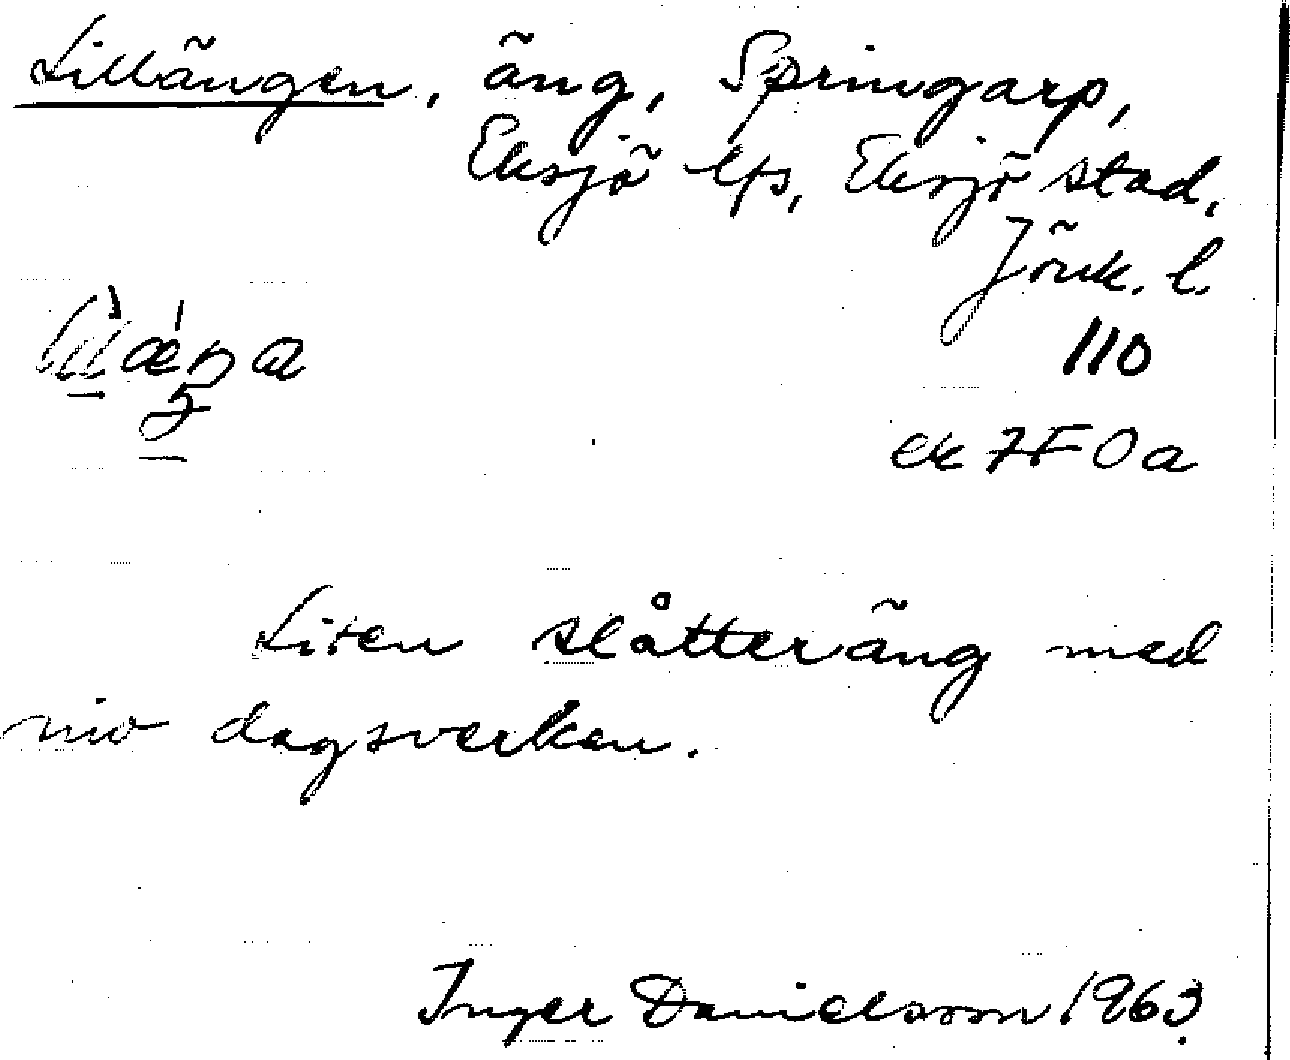 Lillängen, äng, Springarp,
Eksjö lfs, Eksjö stad,
Jönk. l.
110
ek 7F0a
Liten slåtteräng med
nio dagsverken.
Inger Danielsson 1963.